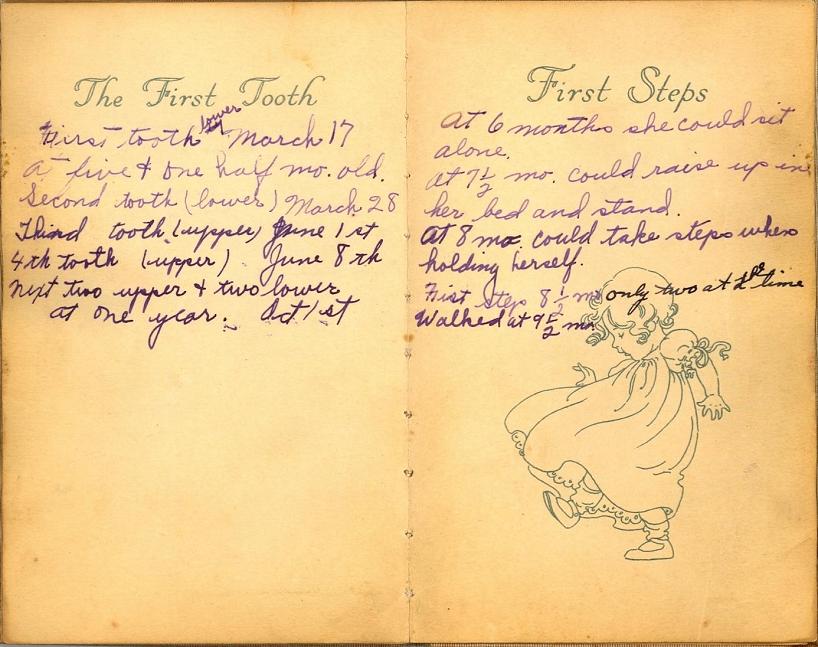 The First Tooth
First tooth lower March 17
At five & one half mo. old.
Second tooth (lower) March 28
Third tooth (upper) June 1st
4th tooth (upper). June 8th
Next two upper & two lower
at one year. Oct 1st
First Steps
At 6 months she could sit
alone.
At 7½ mo. could raise up in
her bed and stand.
At 8 mo. could take steps when
holding herself.
First steps 8½ mo only two at 1st time
Walked at 9½ mo.